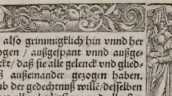 also grimmigklich hin vnnd her
ogen / außgespant vnnd außge⸗
ckt / daß sie alle gelenck vnd glied⸗
ß außeinander gezogen haben.
ub der gedechtnuß wille / desselben